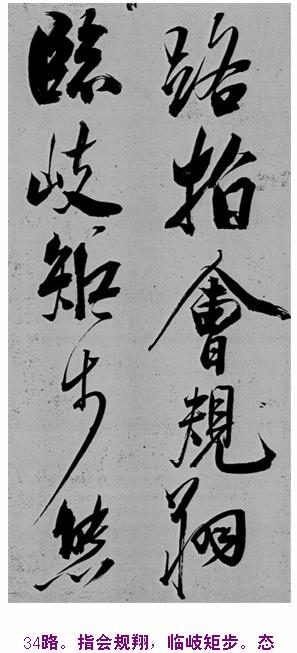 路指會規翔
臨岐矩步態
34路。指会规翔，临岐矩步。态